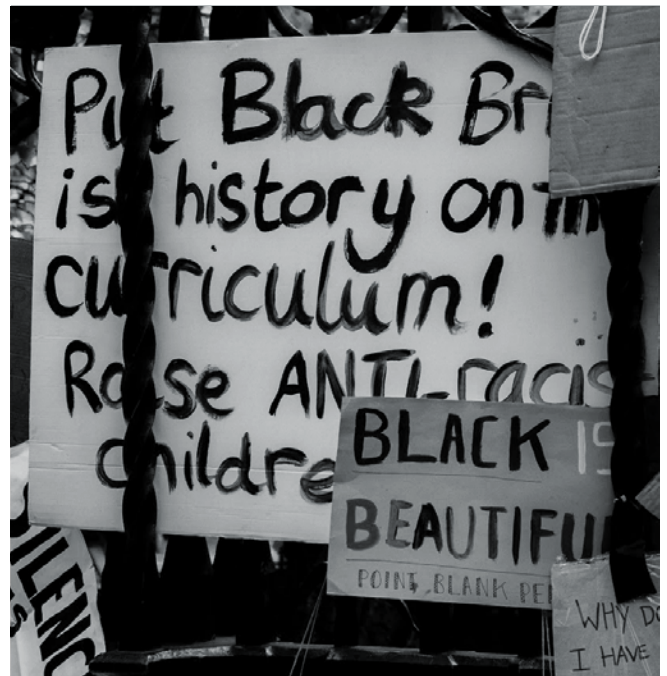 Put Black Br
is history on th
curriculum!
Raise ANTI-racis
childre
BLACK IS
BEAUTIFU
POINT, BLANK PE
WHY DO
I HAVE
ILENC